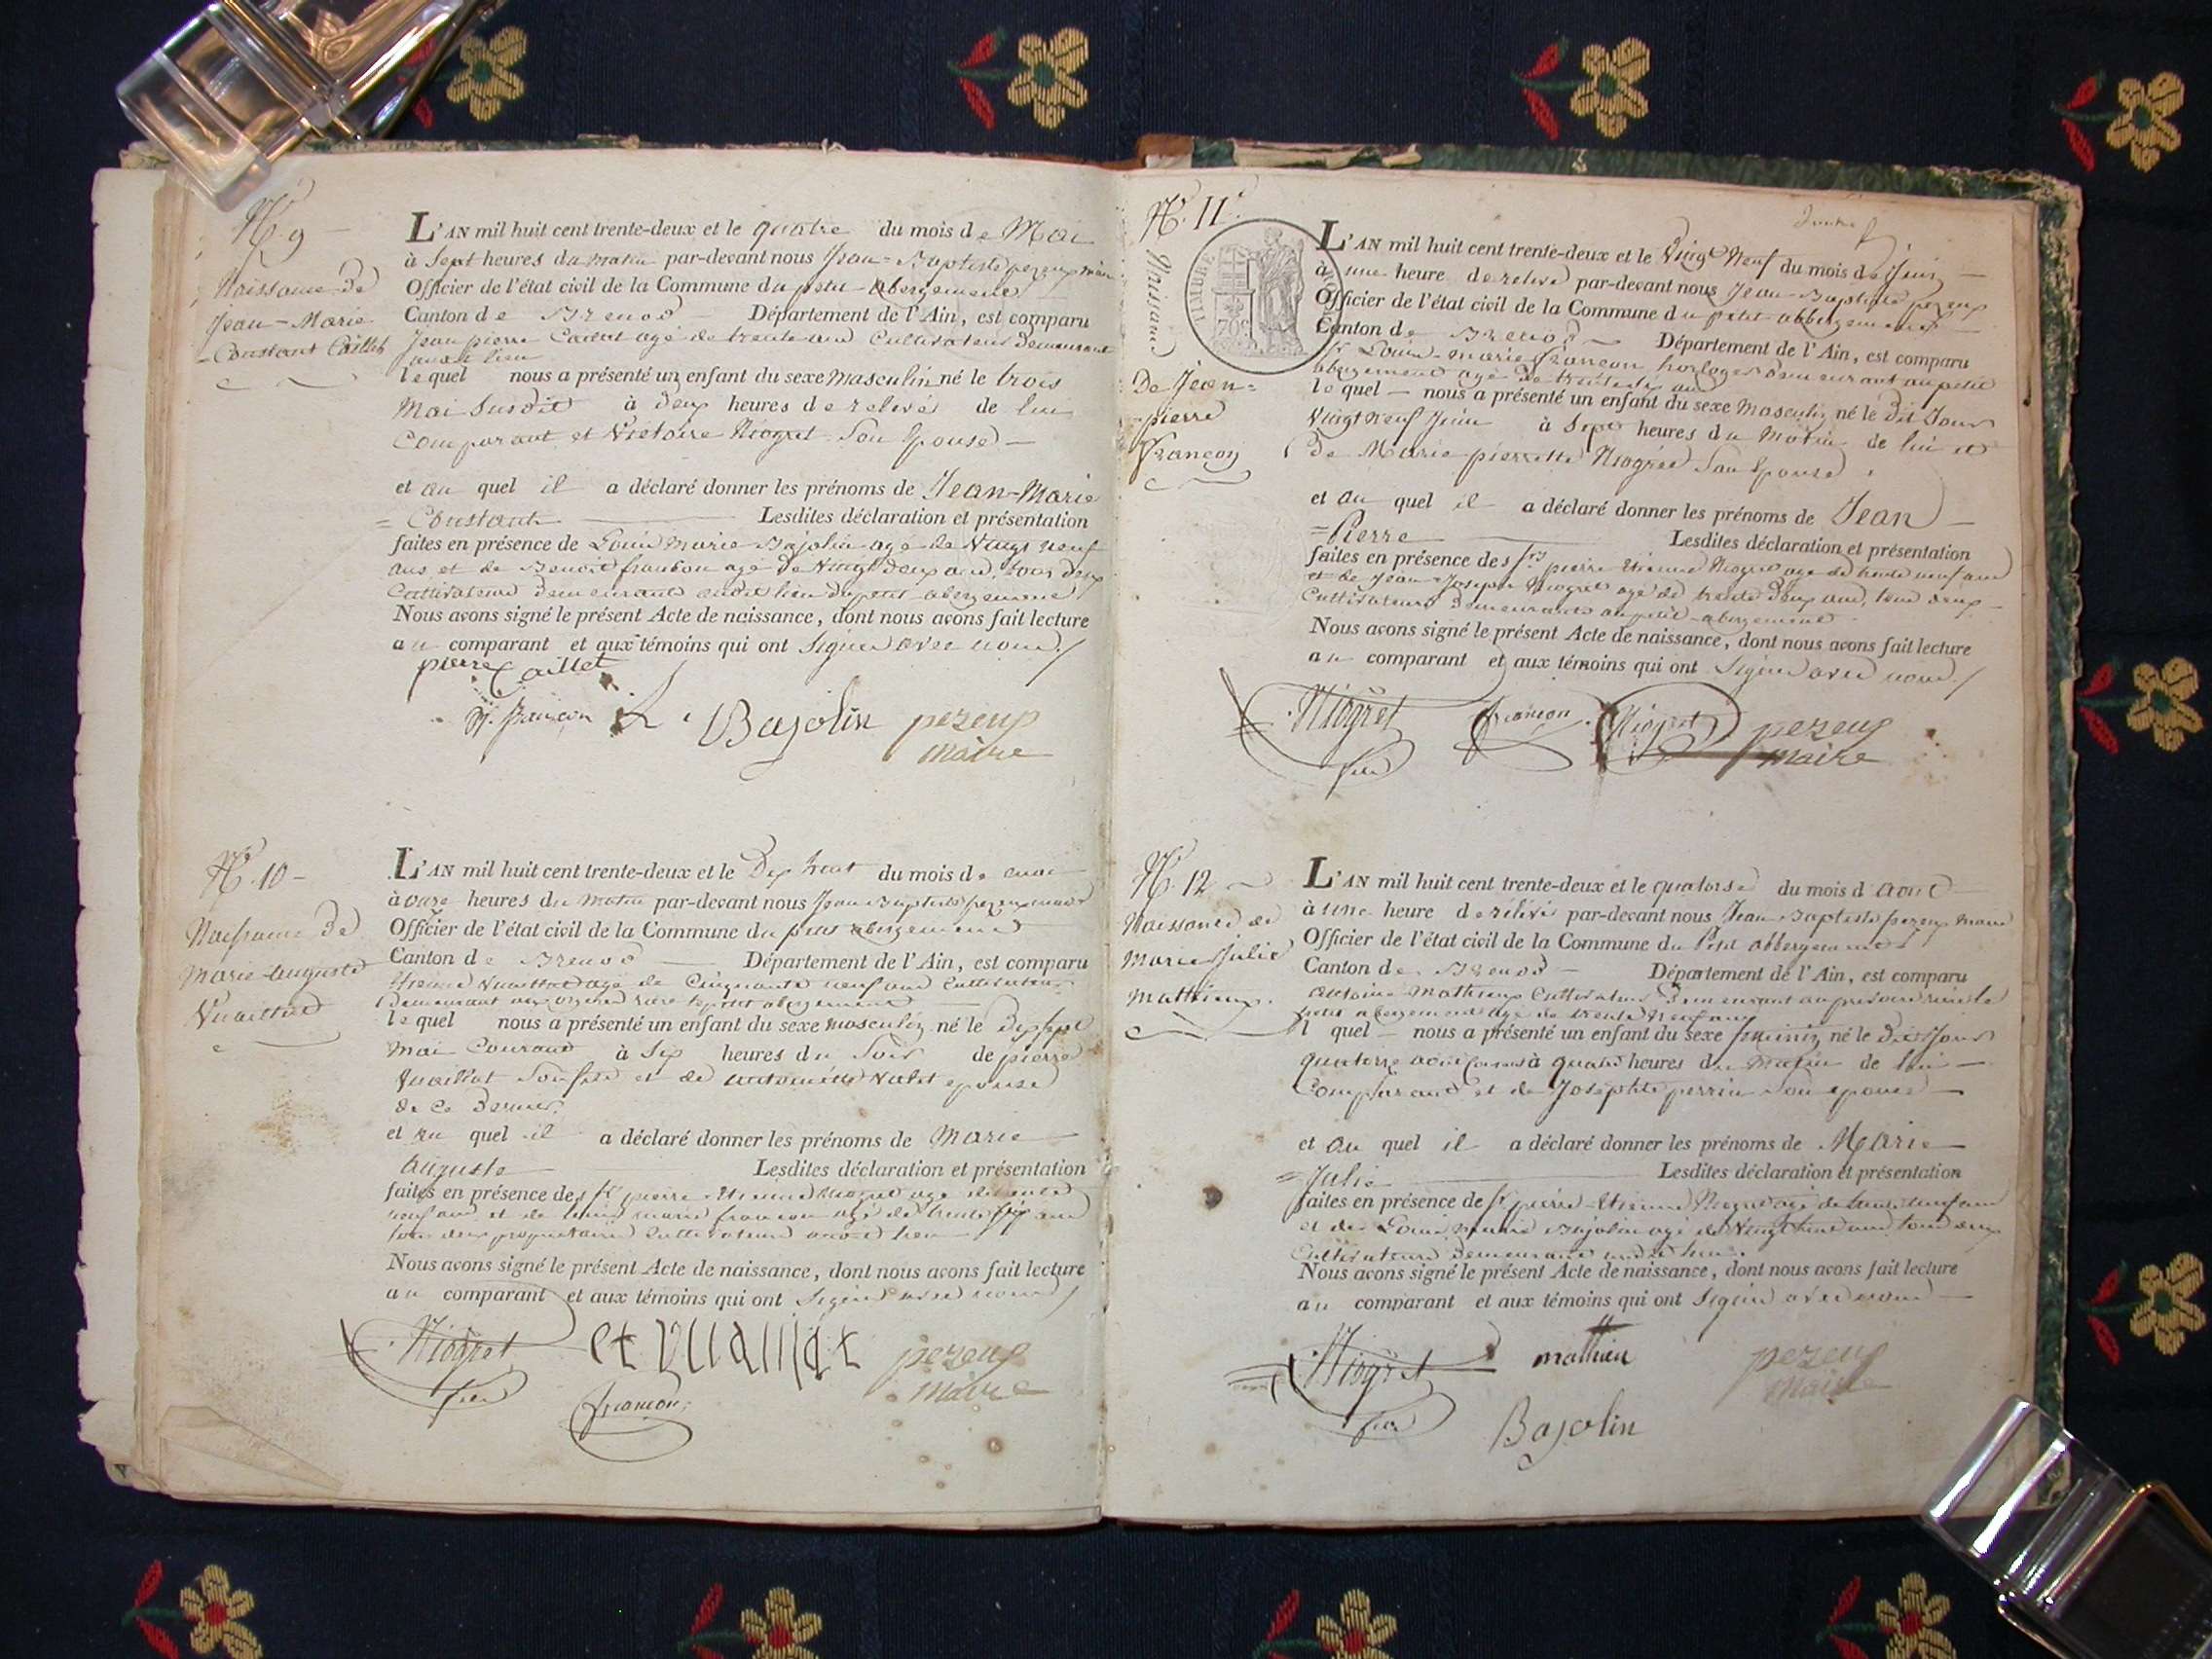 N.º 9
Naissance de
Jean-Marie
Constant Caillet
L'AN mil huit cent trente-deux et le quatre du mois de Mai
à Sept heures du matin par-devant nous Jean-Baptiste pezeup maire
Officier de l'état civil de la Commune du petit abergement
Canton de Brenod Département de l'Ain, est comparu
Jean pierre Caillet agé de trente ans Cultivateur demeurant
audit lieu
lequel nous a présenté un enfant du sexe masculin né le trois
Mai Susdit à deux heures de relevée de lui
Comparant et Victoire Niogret Son Epouse
et au quel il a déclaré donner les prénoms de Jean-Marie
= Constant Lesdites déclaration et présentation
faites en présence de Louis Marie Bajolin agé de Vingt neuf
ans et de Benoit francon agé de Vingt deux ans, tous deux
Cultivateurs demeurants audit lieu du petit abergement
Nous avons signé le présent Acte de naissance, dont nous avons fait lecture
au comparant et aux témoins qui ont Signés avec nous
pierre Caillet
francon L. Bajolin pezeup
maire
N.º 10
Naissance de
Marie Auguste
Vuaillat
L'AN mil huit cent trente-deux et le Dix huit du mois de mai
à onze heures du matin par-devant nous Jean Baptiste pezeup maire
Officier de l'état civil de la Commune du petit abergement
Canton de Brenod Département de l'Ain, est comparu
Etienne Vuaillat agé de Cinquante neuf ans Cultivateur
Demeurant petit abergement
lequel nous a présenté un enfant du sexe masculin né le Dix sept
Mai Courant à Six heures du Soir de pierre
Vuaillat Son fils et de antoinette épouse
de ce dernier.
et au quel il a déclaré donner les prénoms de Marie
Auguste Lesdites déclaration et présentation
faites en présence des Sr pierre Etienne Niogret agé de trente
neuf ans et de Louis marie francon agé de trente six ans
tous deux propriétaires Cultivateurs audit lieu
Nous avons signé le présent Acte de naissance, dont nous avons fait lecture
au comparant et aux témoins qui ont Signés avec nous
Niogret et vuaillat pezeup
francon maire
N.º 11.
Naissance
De Jean=
pierre
Francon
TIMBRE ROYAL
70c
L'AN mil huit cent trente-deux et le Vingt Neuf du mois de Juin
à une heure de relevée par-devant nous Jean-Baptiste pezeup
Officier de l'état civil de la Commune du petit abbergement
Canton de Brenod Département de l'Ain, est comparu
Sr Louis-marie francon horloger demeurant au petit
abergement agé de trente six ans
lequel nous a présenté un enfant du sexe Masculin né le dit Jour
Vingt neuf Juin à Sept heures du Matin de lui et
De Marie pierrette Niogret Son Epouse.
et au quel il a déclaré donner les prénoms de Jean
=Pierre Lesdites déclaration et présentation
faites en présence des Srs pierre Etienne Niogret agé de trente neuf ans
et de Jean Joseph Niogret agé de trente deux ans, tous deux
Cultivateurs Demeurants au petit abergement
Nous avons signé le présent Acte de naissance, dont nous avons fait lecture
au comparant et aux témoins qui ont Signés avec nous
Niogret francon Niogret pezeup
maire
N.º 12
Naissance de
Marie Julie
Mathieux.
L'AN mil huit cent trente-deux et le quatorse du mois d'aout
à une heure de relévée par-devant nous Jean-Baptiste pezeup maire
Officier de l'état civil de la Commune du Petit abbergement
Canton de Brenod Département de l'Ain, est comparu
antoine Mathieux Cultivateur Demeurant
petit abergement agé de trente Neuf ans
lequel nous a présenté un enfant du sexe féminin né le Dit Jour
quatorze aout à quatre heures du Matin de lui
Comparant et de Josephte perrin Son épouse
et au quel il a déclaré donner les prénoms de Marie
=Julie Lesdites déclaration et présentation
faites en présence de Sr pierre-Etienne Niogret agé de trente neuf ans
et de Louis marie Bajolin agé de Vingt neuf ans tous deux
Cultivateurs Demeurant audit lieu.
Nous avons signé le présent Acte de naissance, dont nous avons fait lecture
au comparant et aux témoins qui ont Signés avec nous
Niogret mathieu pezeup
maire
Bajolin